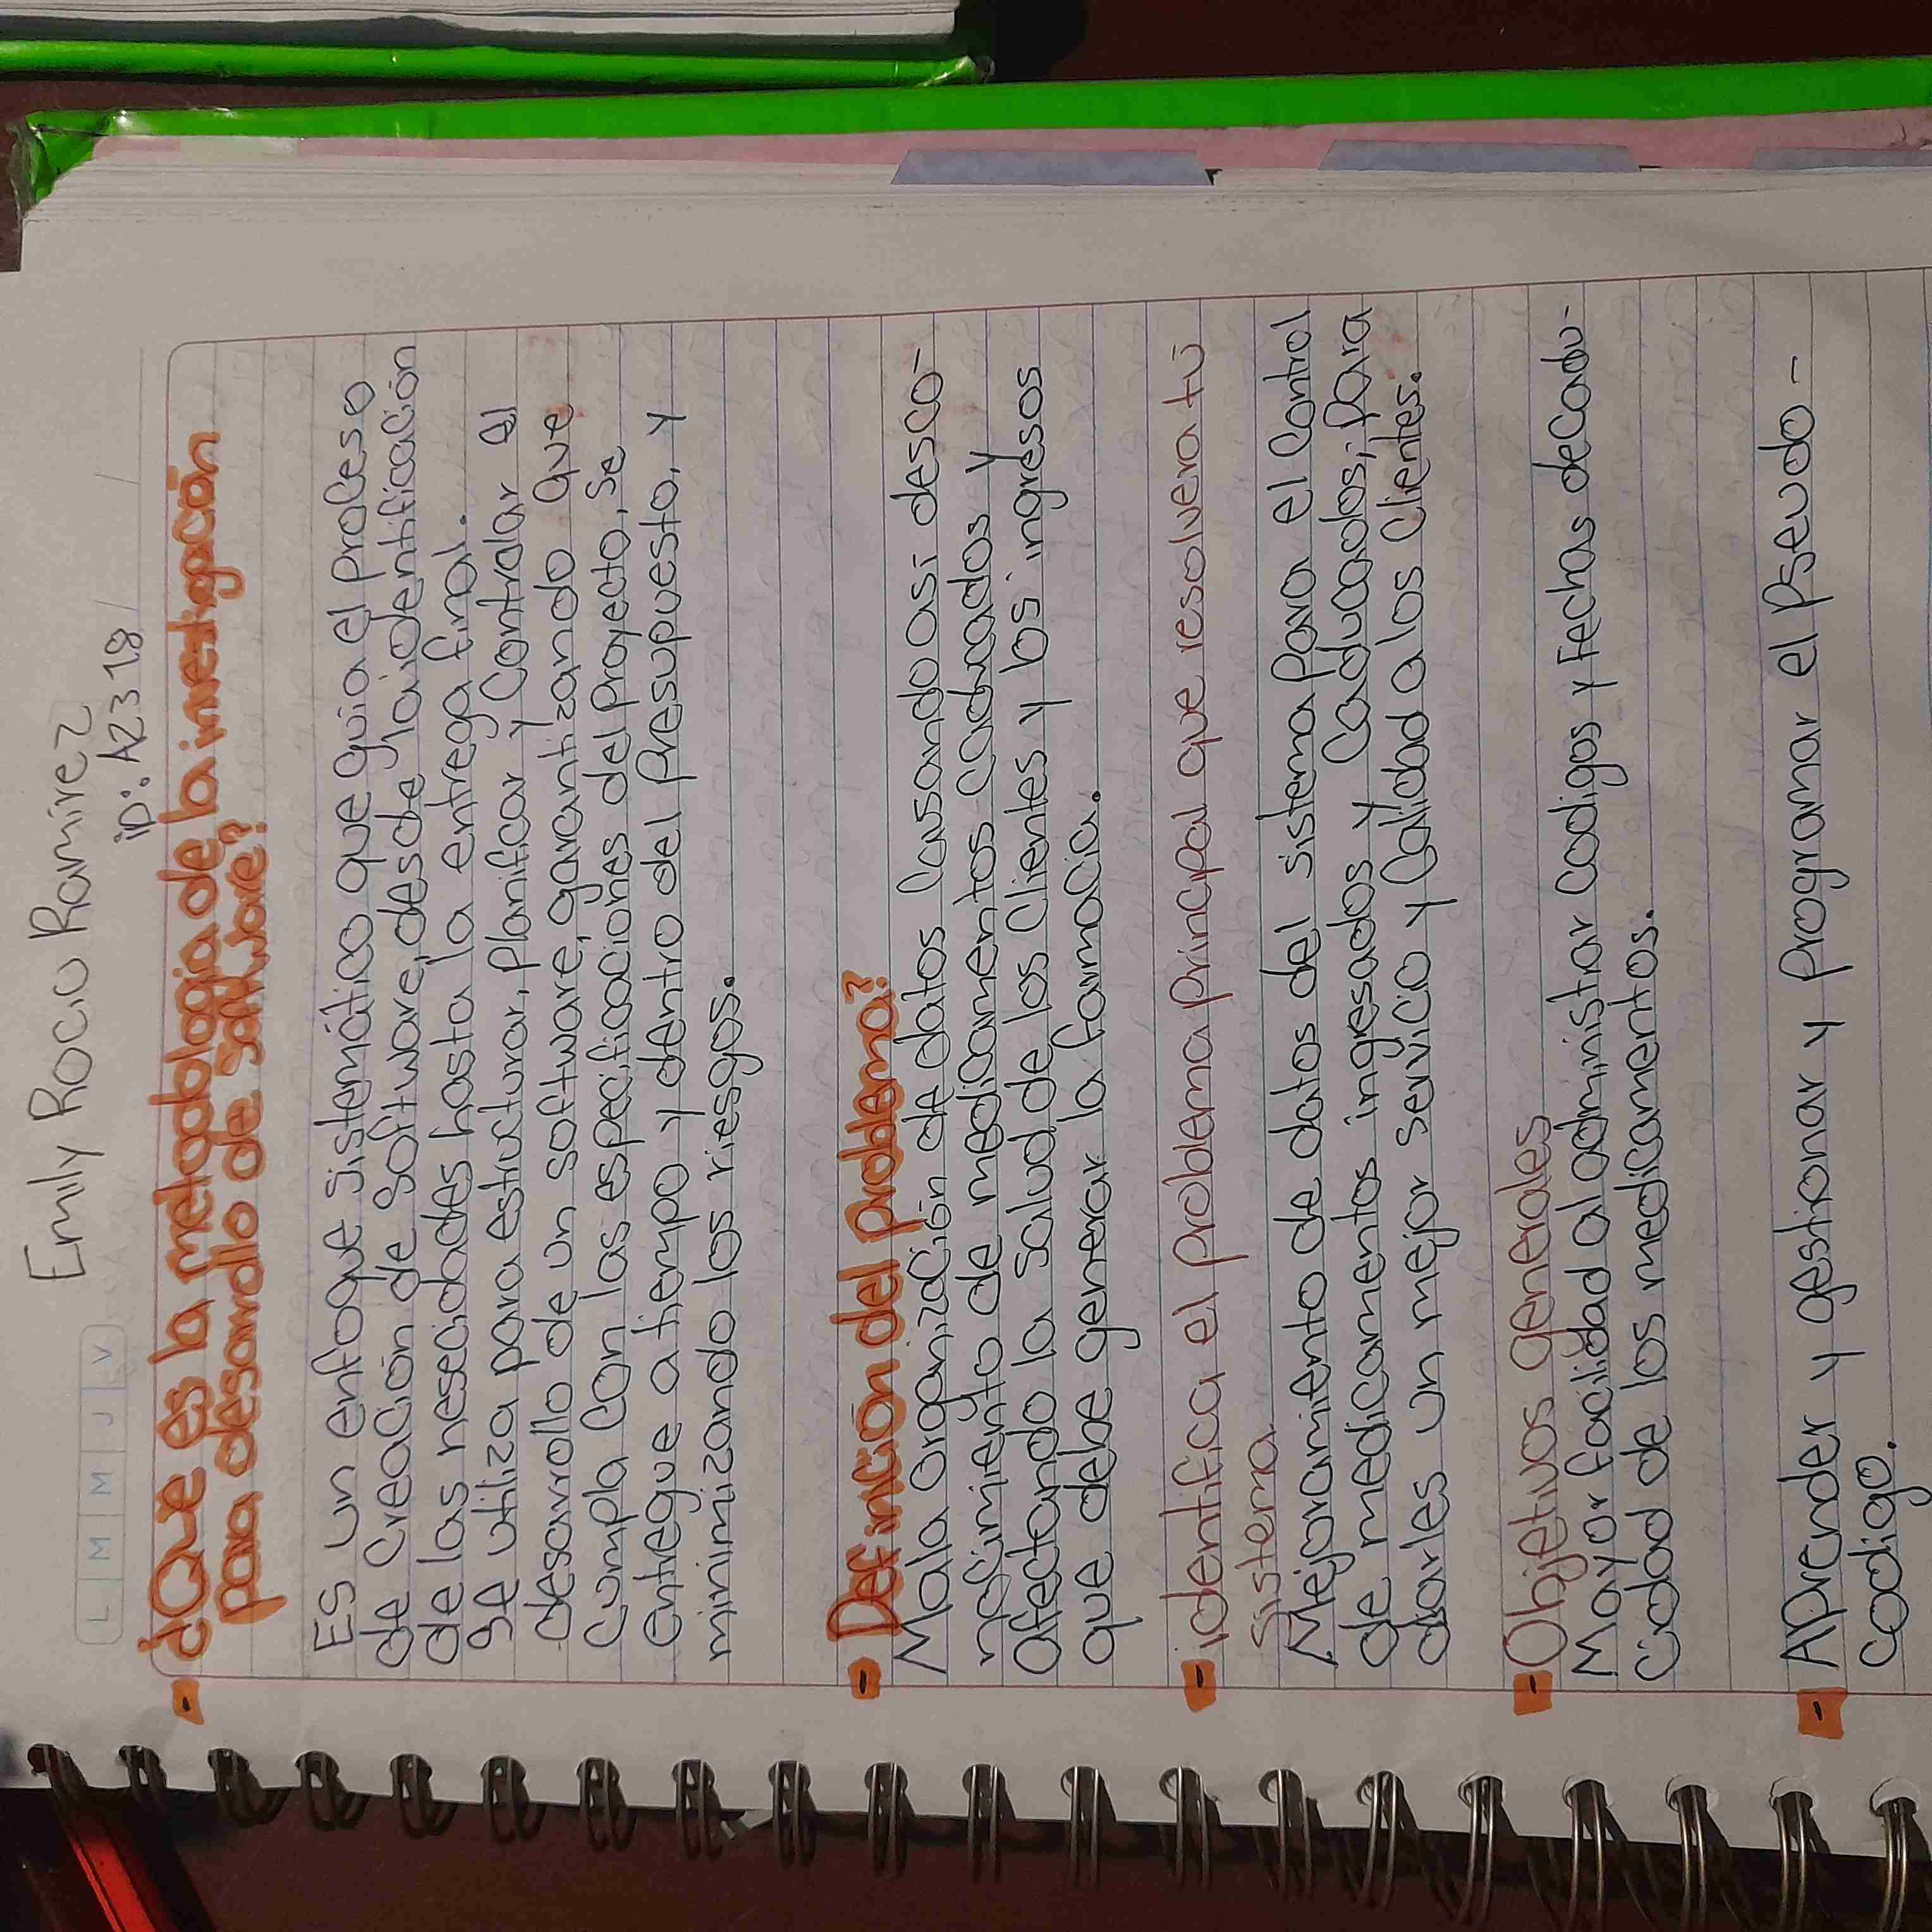 Emily Rocio Ramirez
iD: A2318
L M M J V
- ¿Que es la metodologia de la investigación
para desarrollo de software?
Es un enfoque sistemático que guia el proceso
de creación de software, desde la identificación
de las nesecidades hasta la entrega final.
Se utiliza para estructurar, planificar y Controlar el
desarrollo de un software, garantizando que
cumpla con las especificaciones del proyecto, se
entregue a tiempo y dentro del presupuesto, y
minimizando los riesgos.
- Definición del problema?
Mala organización de datos Causando asi desco-
nocimiento de medicamentos caducados y
afectando la salud de los Clientes y los ingresos
que debe generar la farmacia.
- identifica el problema principal que resolvera tú
sistema
Mejoramiento de datos del sistema para el control
de medicamentos ingresados y caducados; para
darles un mejor servicio y Calidad a los Clientes.
- Objetivos generales
Mayor facilidad al administrar codigos y Fechas de cadu-
cidad de los medicamentos.
- APrender y gestionar y programar el Pseudo-
codigo.